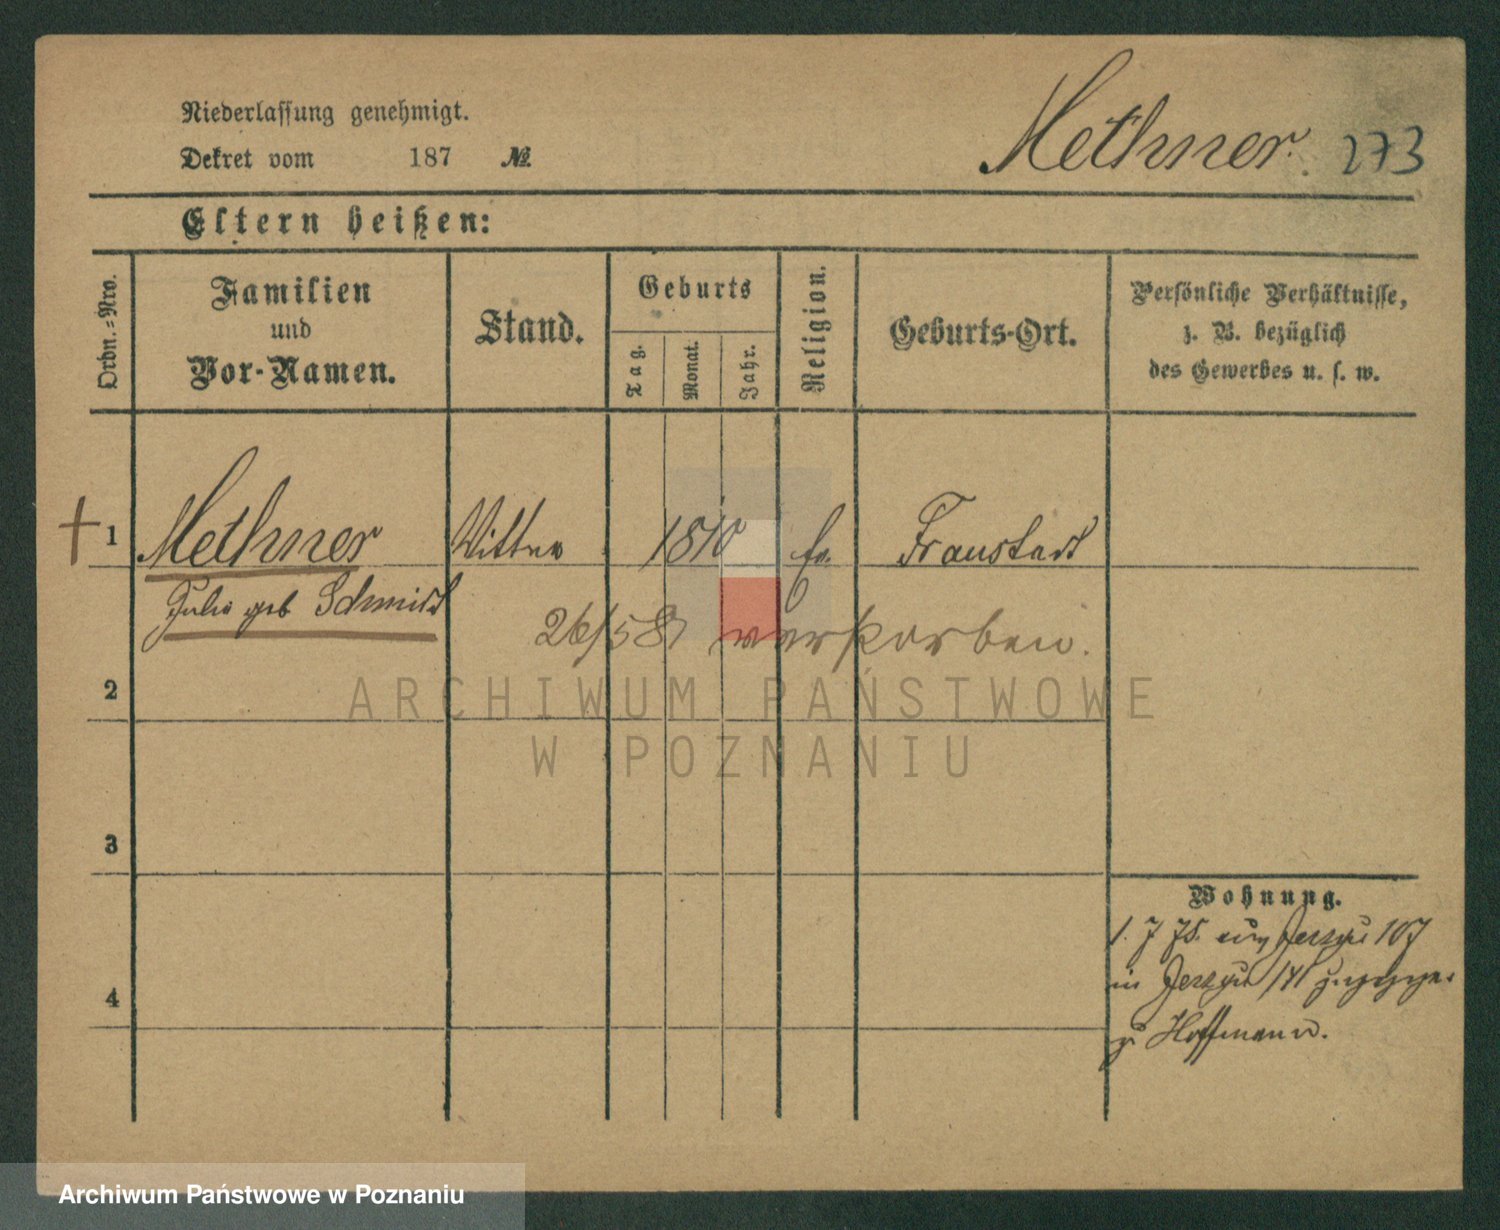 Niederlassung genehmigt.
Dekret vom 187 №
Methner. 273
Eltern heißen:
Ordn.=Nro.
Familien
und
Vor-Namen.
Stand.
Geburts
Tag.
Monat.
Jahr.
Religion.
Geburts-Ort.
Persönliche Verhältnisse,
z. B. bezüglich
des Gewerbes u. s. w.
† 1 Methner Wittwe 1810 Ev. Fraustadt
Julie geb Schmidt
verstorben.
2
ARCHIWUM PAŃSTWOWE
W POZNANIU
3
Wohnung.
1. 7 75. aus Jerzyce 107
in Jerzyce 141
4
zu Hoffmann.
Archiwum Państwowe w Poznaniu